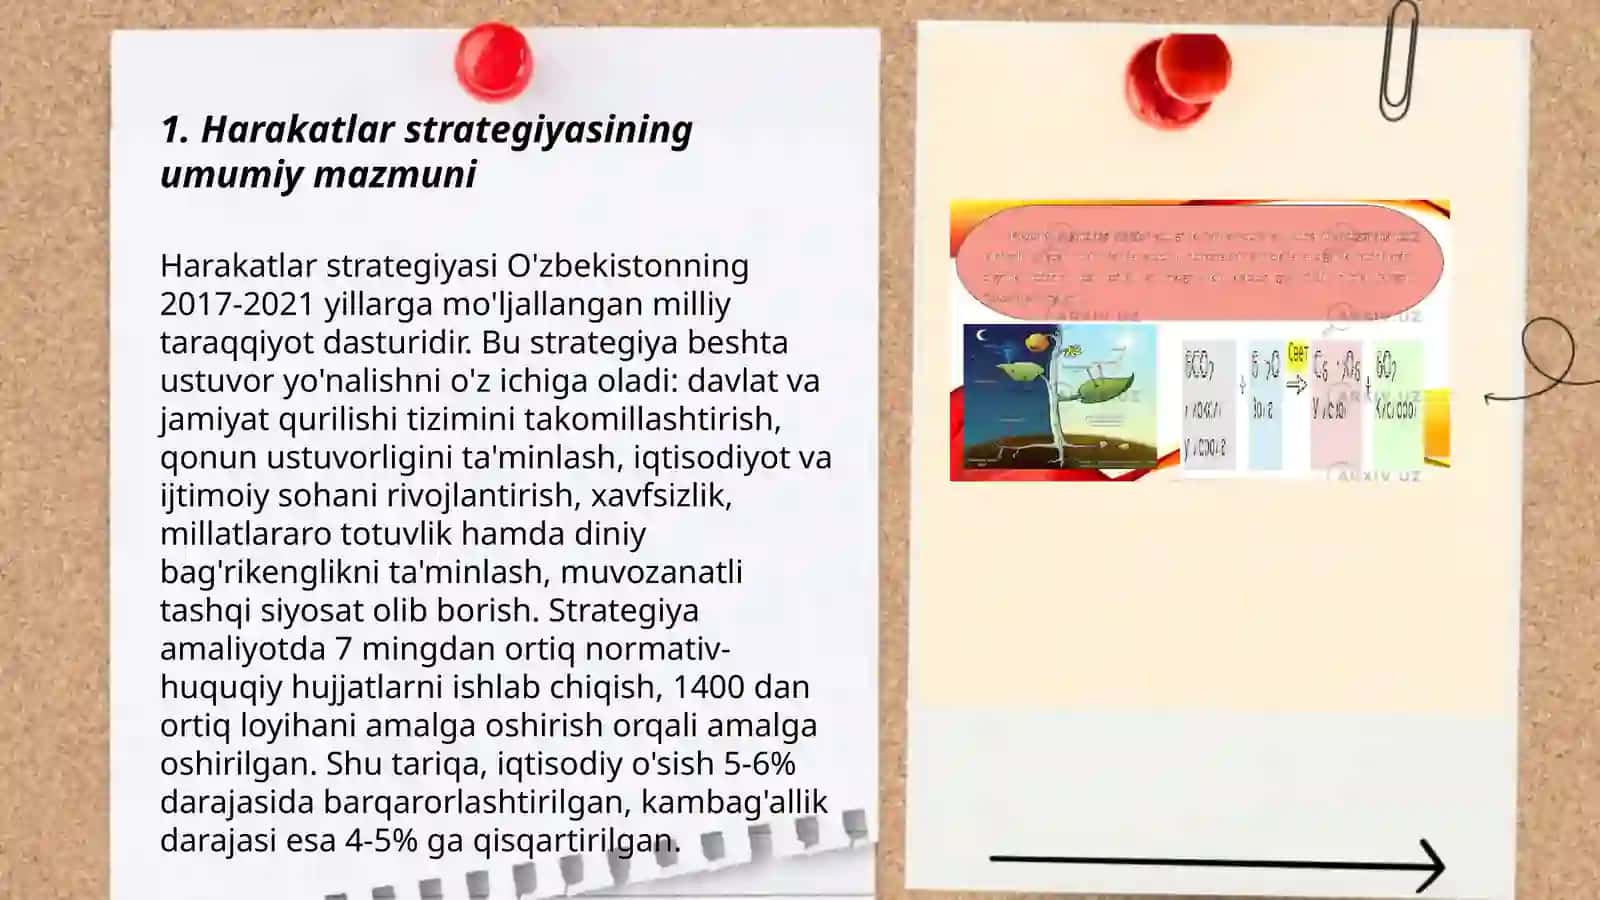 1. Harakatlar strategiyasining
umumiy mazmuni
Harakatlar strategiyasi O'zbekistonning
2017-2021 yillarga mo'ljallangan milliy
taraqqiyot dasturidir. Bu strategiya beshta
ustuvor yo'nalishni o'z ichiga oladi: davlat va
jamiyat qurilishi tizimini takomillashtirish,
qonun ustuvorligini ta'minlash, iqtisodiyot va
ijtimoiy sohani rivojlantirish, xavfsizlik,
millatlararo totuvlik hamda diniy
bag'rikenglikni ta'minlash, muvozanatli
tashqi siyosat olib borish. Strategiya
amaliyotda 7 mingdan ortiq normativ-
huquqiy hujjatlarni ishlab chiqish, 1400 dan
ortiq loyihani amalga oshirish orqali amalga
oshirilgan. Shu tariqa, iqtisodiy o'sish 5-6%
darajasida barqarorlashtirilgan, kambag'allik
darajasi esa 4-5% ga qisqartirilgan.
ARXIV.UZ
ARXIV.UZ
Свет
6CO2
ARXIV.UZ